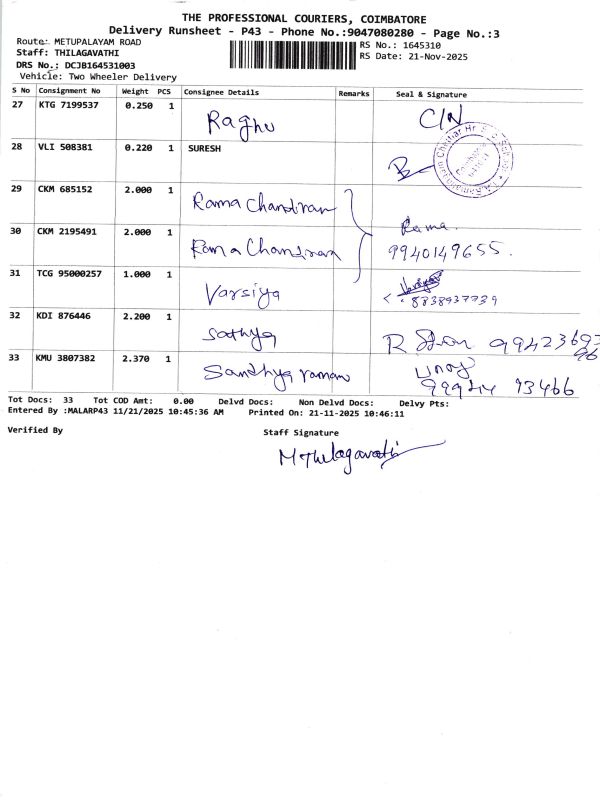 THE PROFESSIONAL COURIERS, COIMBATORE
Delivery Runsheet - P43 - Phone No.:9047080280 - Page No.:3
Route: METUPALAYAM ROAD
RS No.: 1645310
Staff: THILAGAVATHI
RS Date: 21-Nov-2025
DRS No.: DCJB164531003
Vehicle: Two Wheeler Delivery
S No Consignment No Weight PCS Consignee Details Remarks Seal & Signature
27 KTG 7199537 0.250 1 Raghu C/N
28 VLI 508381 0.220 1 SURESH
29 CKM 685152 2.000 1 Rama Chandiran
30 CKM 2195491 2.000 1 Rama Chandiran Rama. 9940149655.
31 TCG 95000257 1.000 1 Varsiya 8838937739
32 KDI 876446 2.200 1 Sathya R
33 KMU 3807382 2.370 1 Sandhya raman 99944 93466
Tot Docs: 33 Tot COD Amt: 0.00 Delvd Docs: Non Delvd Docs: Delvy Pts:
Entered By :MALARP43 11/21/2025 10:45:36 AM Printed On: 21-11-2025 10:46:11
Verified By Staff Signature
M Thilagavathi